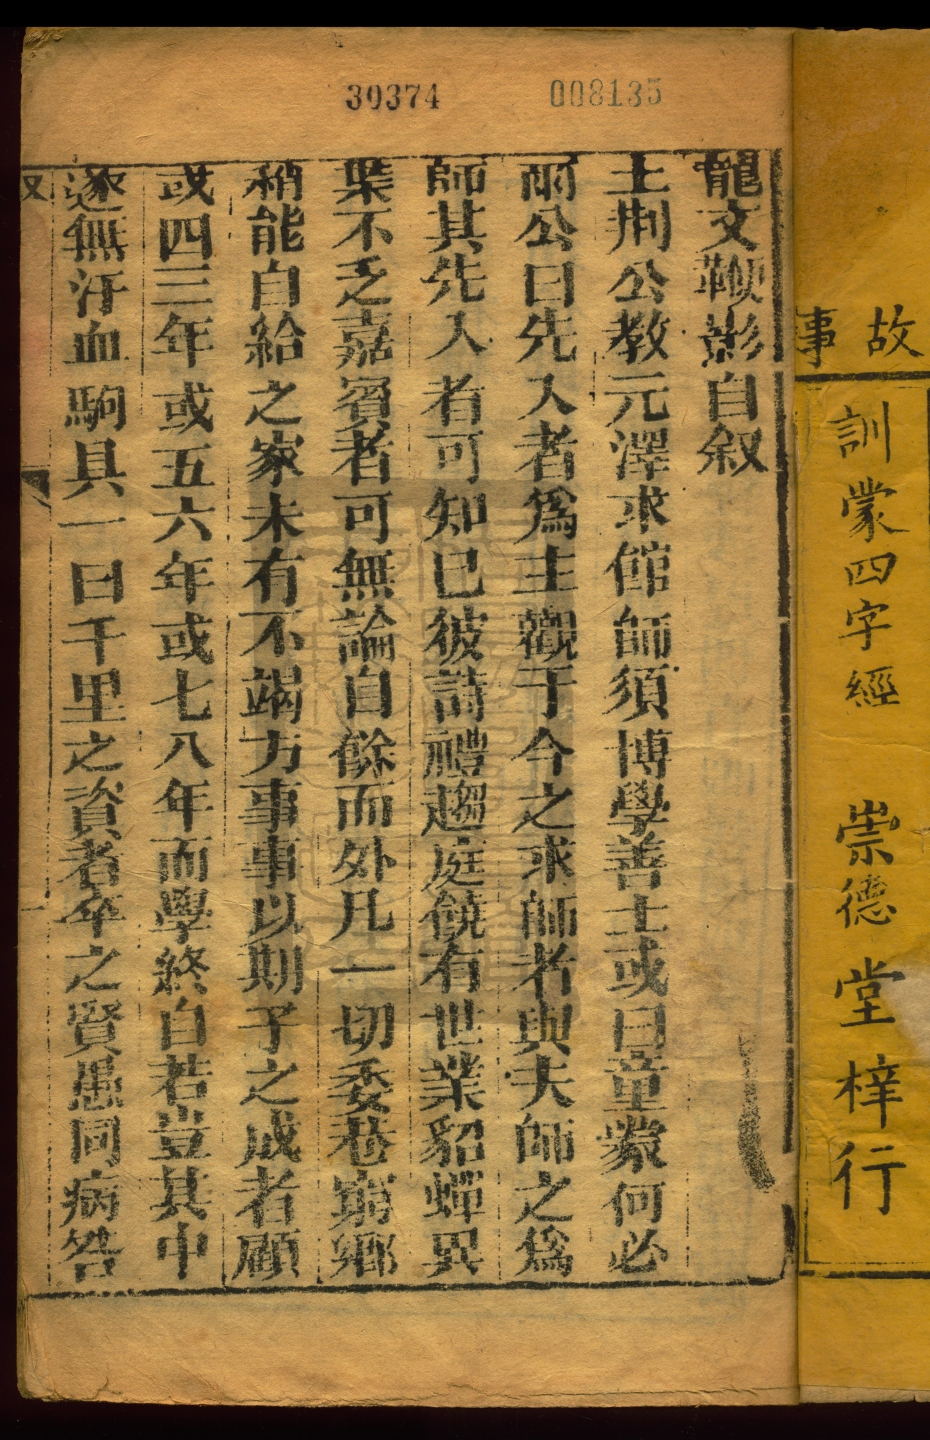 30374
008135
故事
訓蒙四字經
崇德堂梓行
龍文鞭影自叙
王荆公教元澤求館師須博學善士或曰童蒙何必
爾公曰先入者爲主觀于今之求師者與夫師之爲
師其先入者可知已彼詩禮趨庭饒有世業貂蟬異
葉不乏嘉賓者可無論自餘而外凡一切委巷窮鄉
稍能自給之家未有不竭力事事以期子之成者顧
或四三年或五六年或七八年而學終自若豈其中
遂無汗血駒具一日千里之資者卒之賢愚同病咎
叙